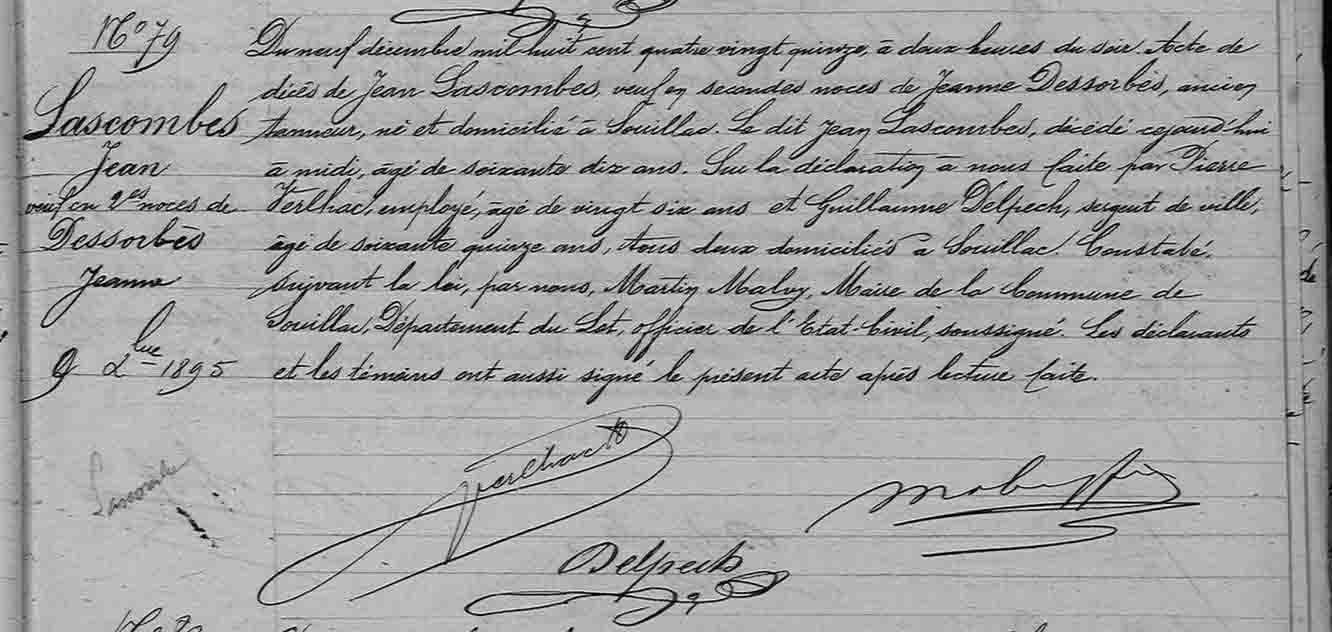 N° 79
Lascombes
Jean
veuf en 2es noces de
Dessorbès
Jeanne
9 Xbre 1895
Lascombes
Du neuf décembre mil huit cent quatre vingt quinze, à deux heures du soir. Acte de
décès de Jean Lascombes, veuf en secondes noces de Jeanne Dessorbès, ancien
tanneur, né et domicilié à Souillac. Le dit Jean Lascombes, décédé cejourd'hui
à midi, âgé de soixante dix ans. Sur la déclaration à nous faite par Pierre
Verlhac, employé, âgé de vingt six ans et Guillaume Delpech, sergent de ville,
âgé de soixante quinze ans, tous deux domiciliés à Souillac. Constaté,
suivant la loi, par nous, Martin Malvy, Maire de la Commune de
Souillac, Département du Lot, officier de l'Etat-Civil, soussigné. Les déclarants
et les témoins ont aussi signé le présent acte après lecture faite.
Verlhac
Delpech